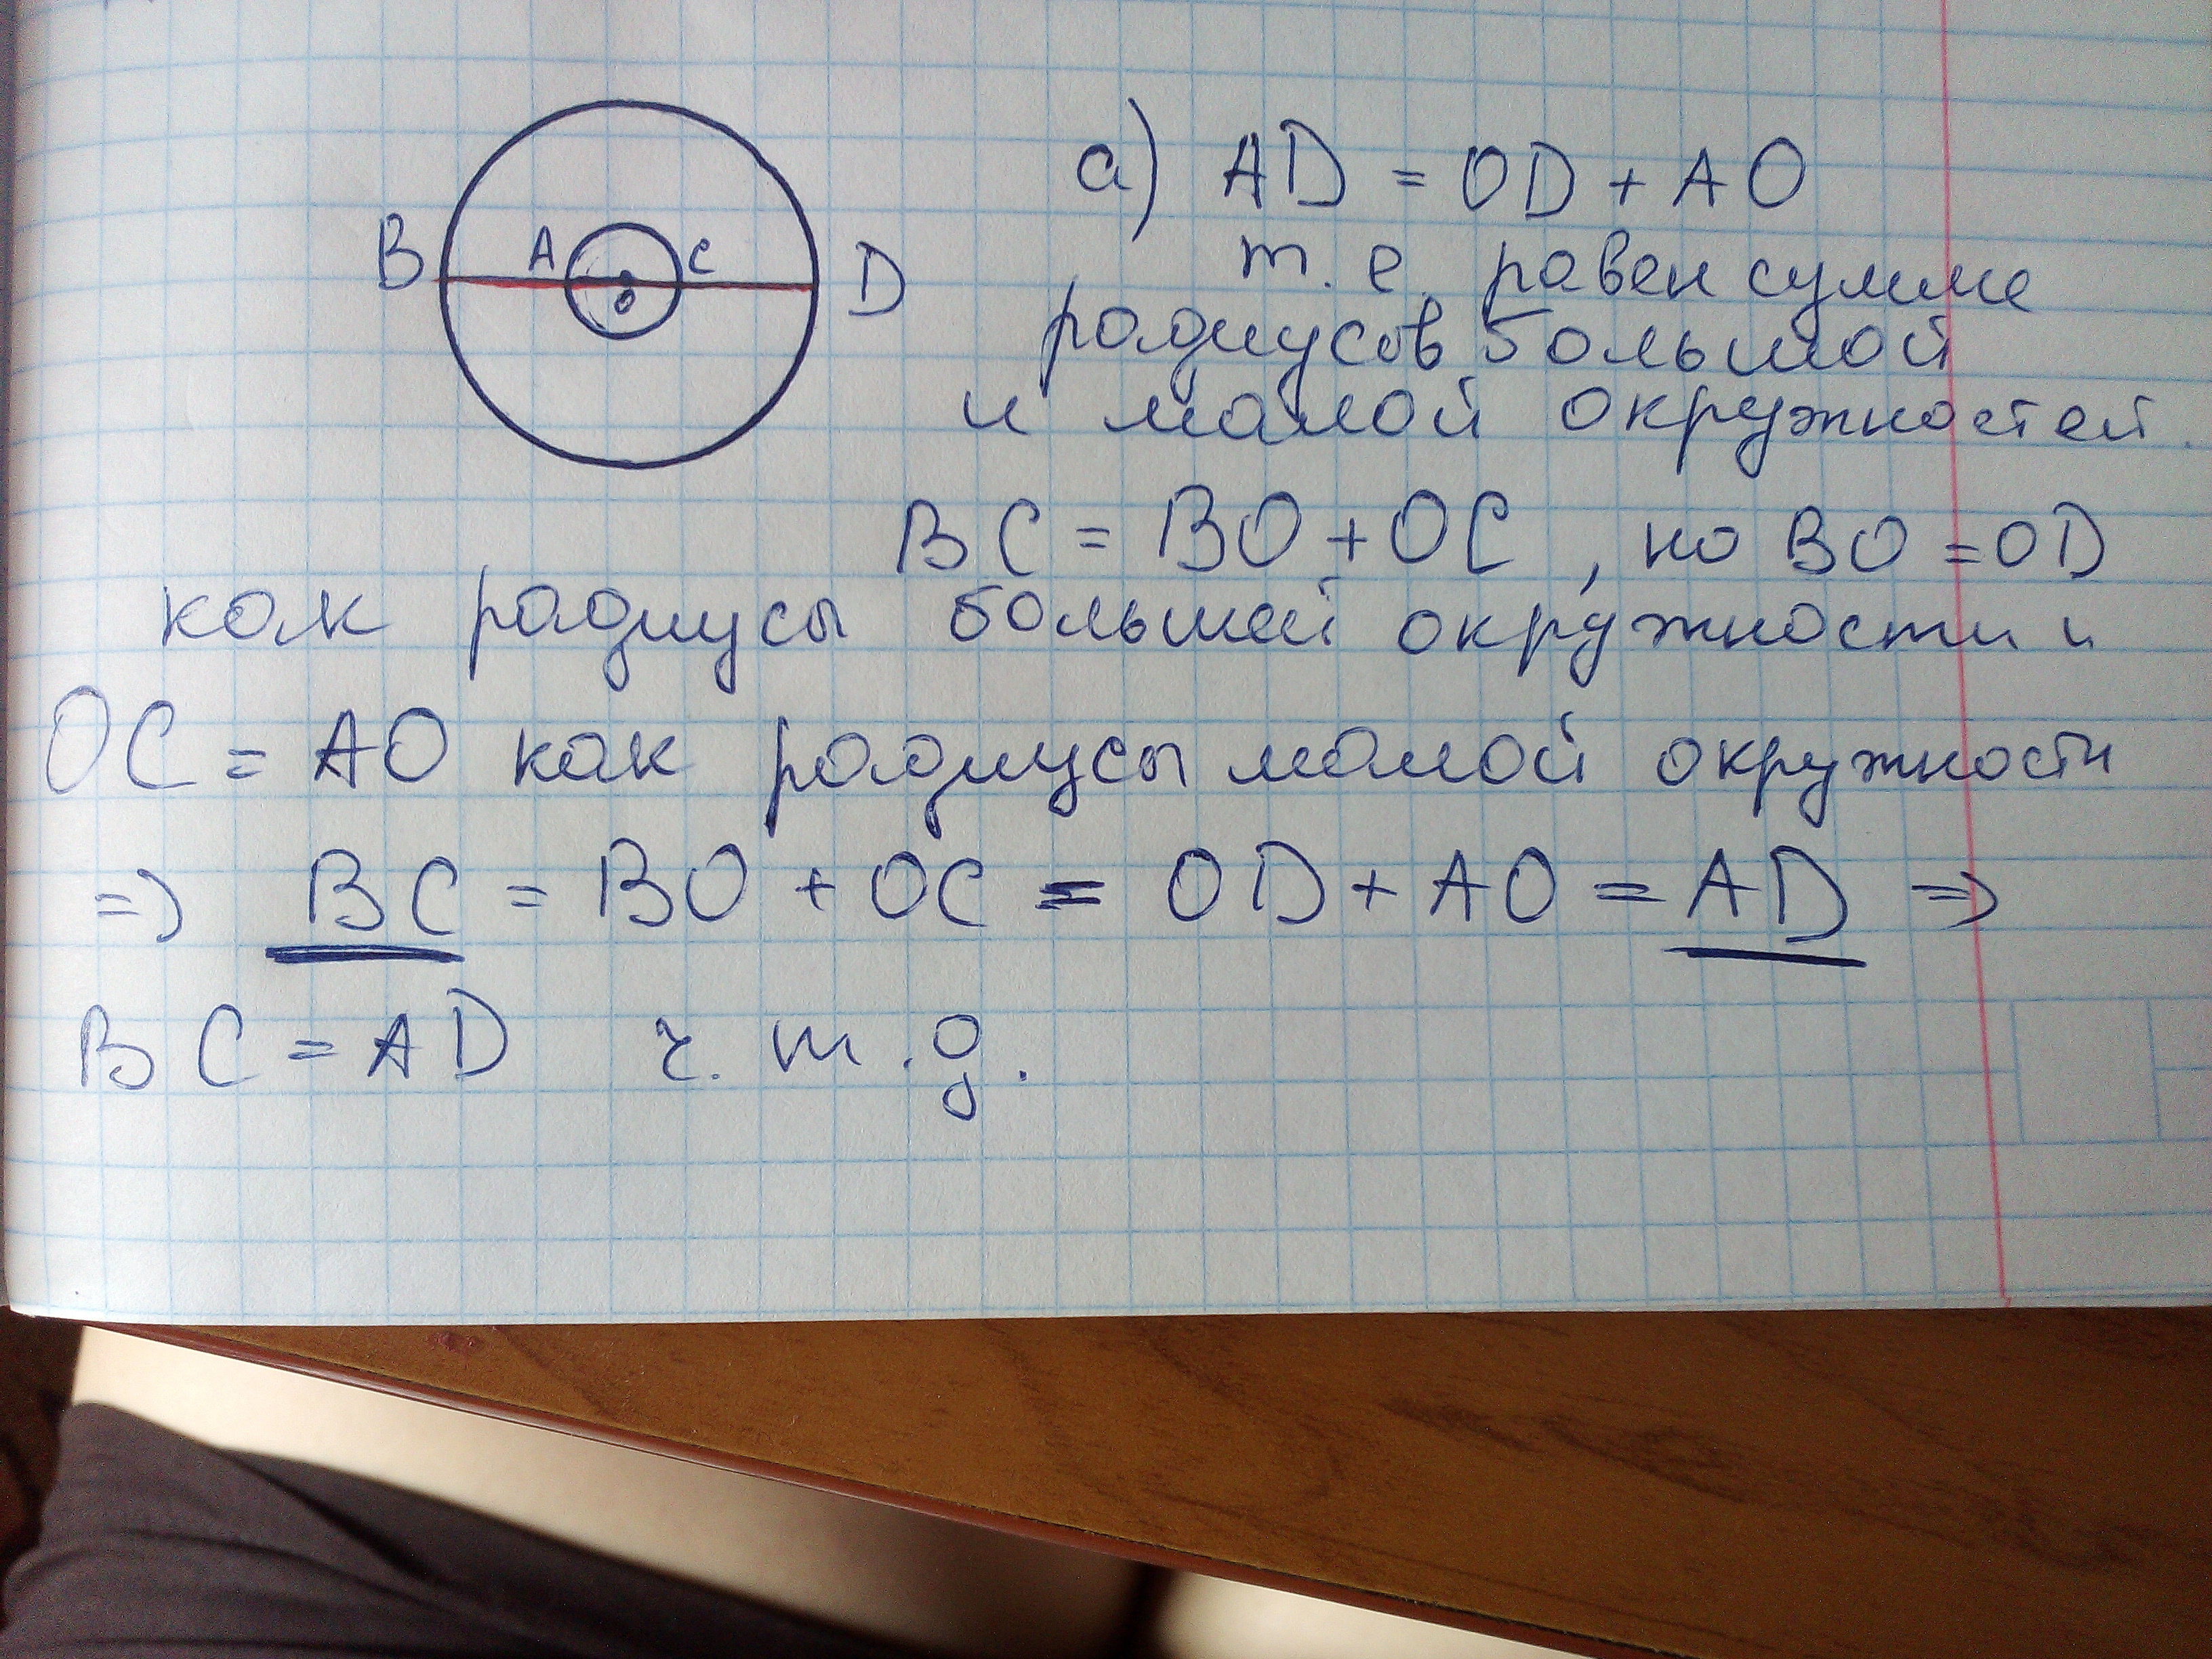 а) AD = OD + AO
B A C D
O
т. е. равен сумме
радиусов большой
и малой окружностей.
BC = BO + OC, но BO = OD
как радиусы большей окружности и
OC = AO как радиусы малой окружности
=> BC = BO + OC = OD + AO = AD =>
BC = AD ч. т. д.